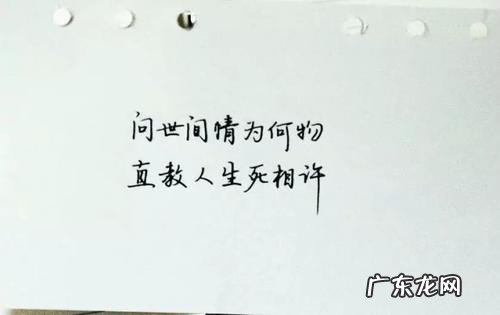 问世间情为何物
直教人生死相许
广东龙网